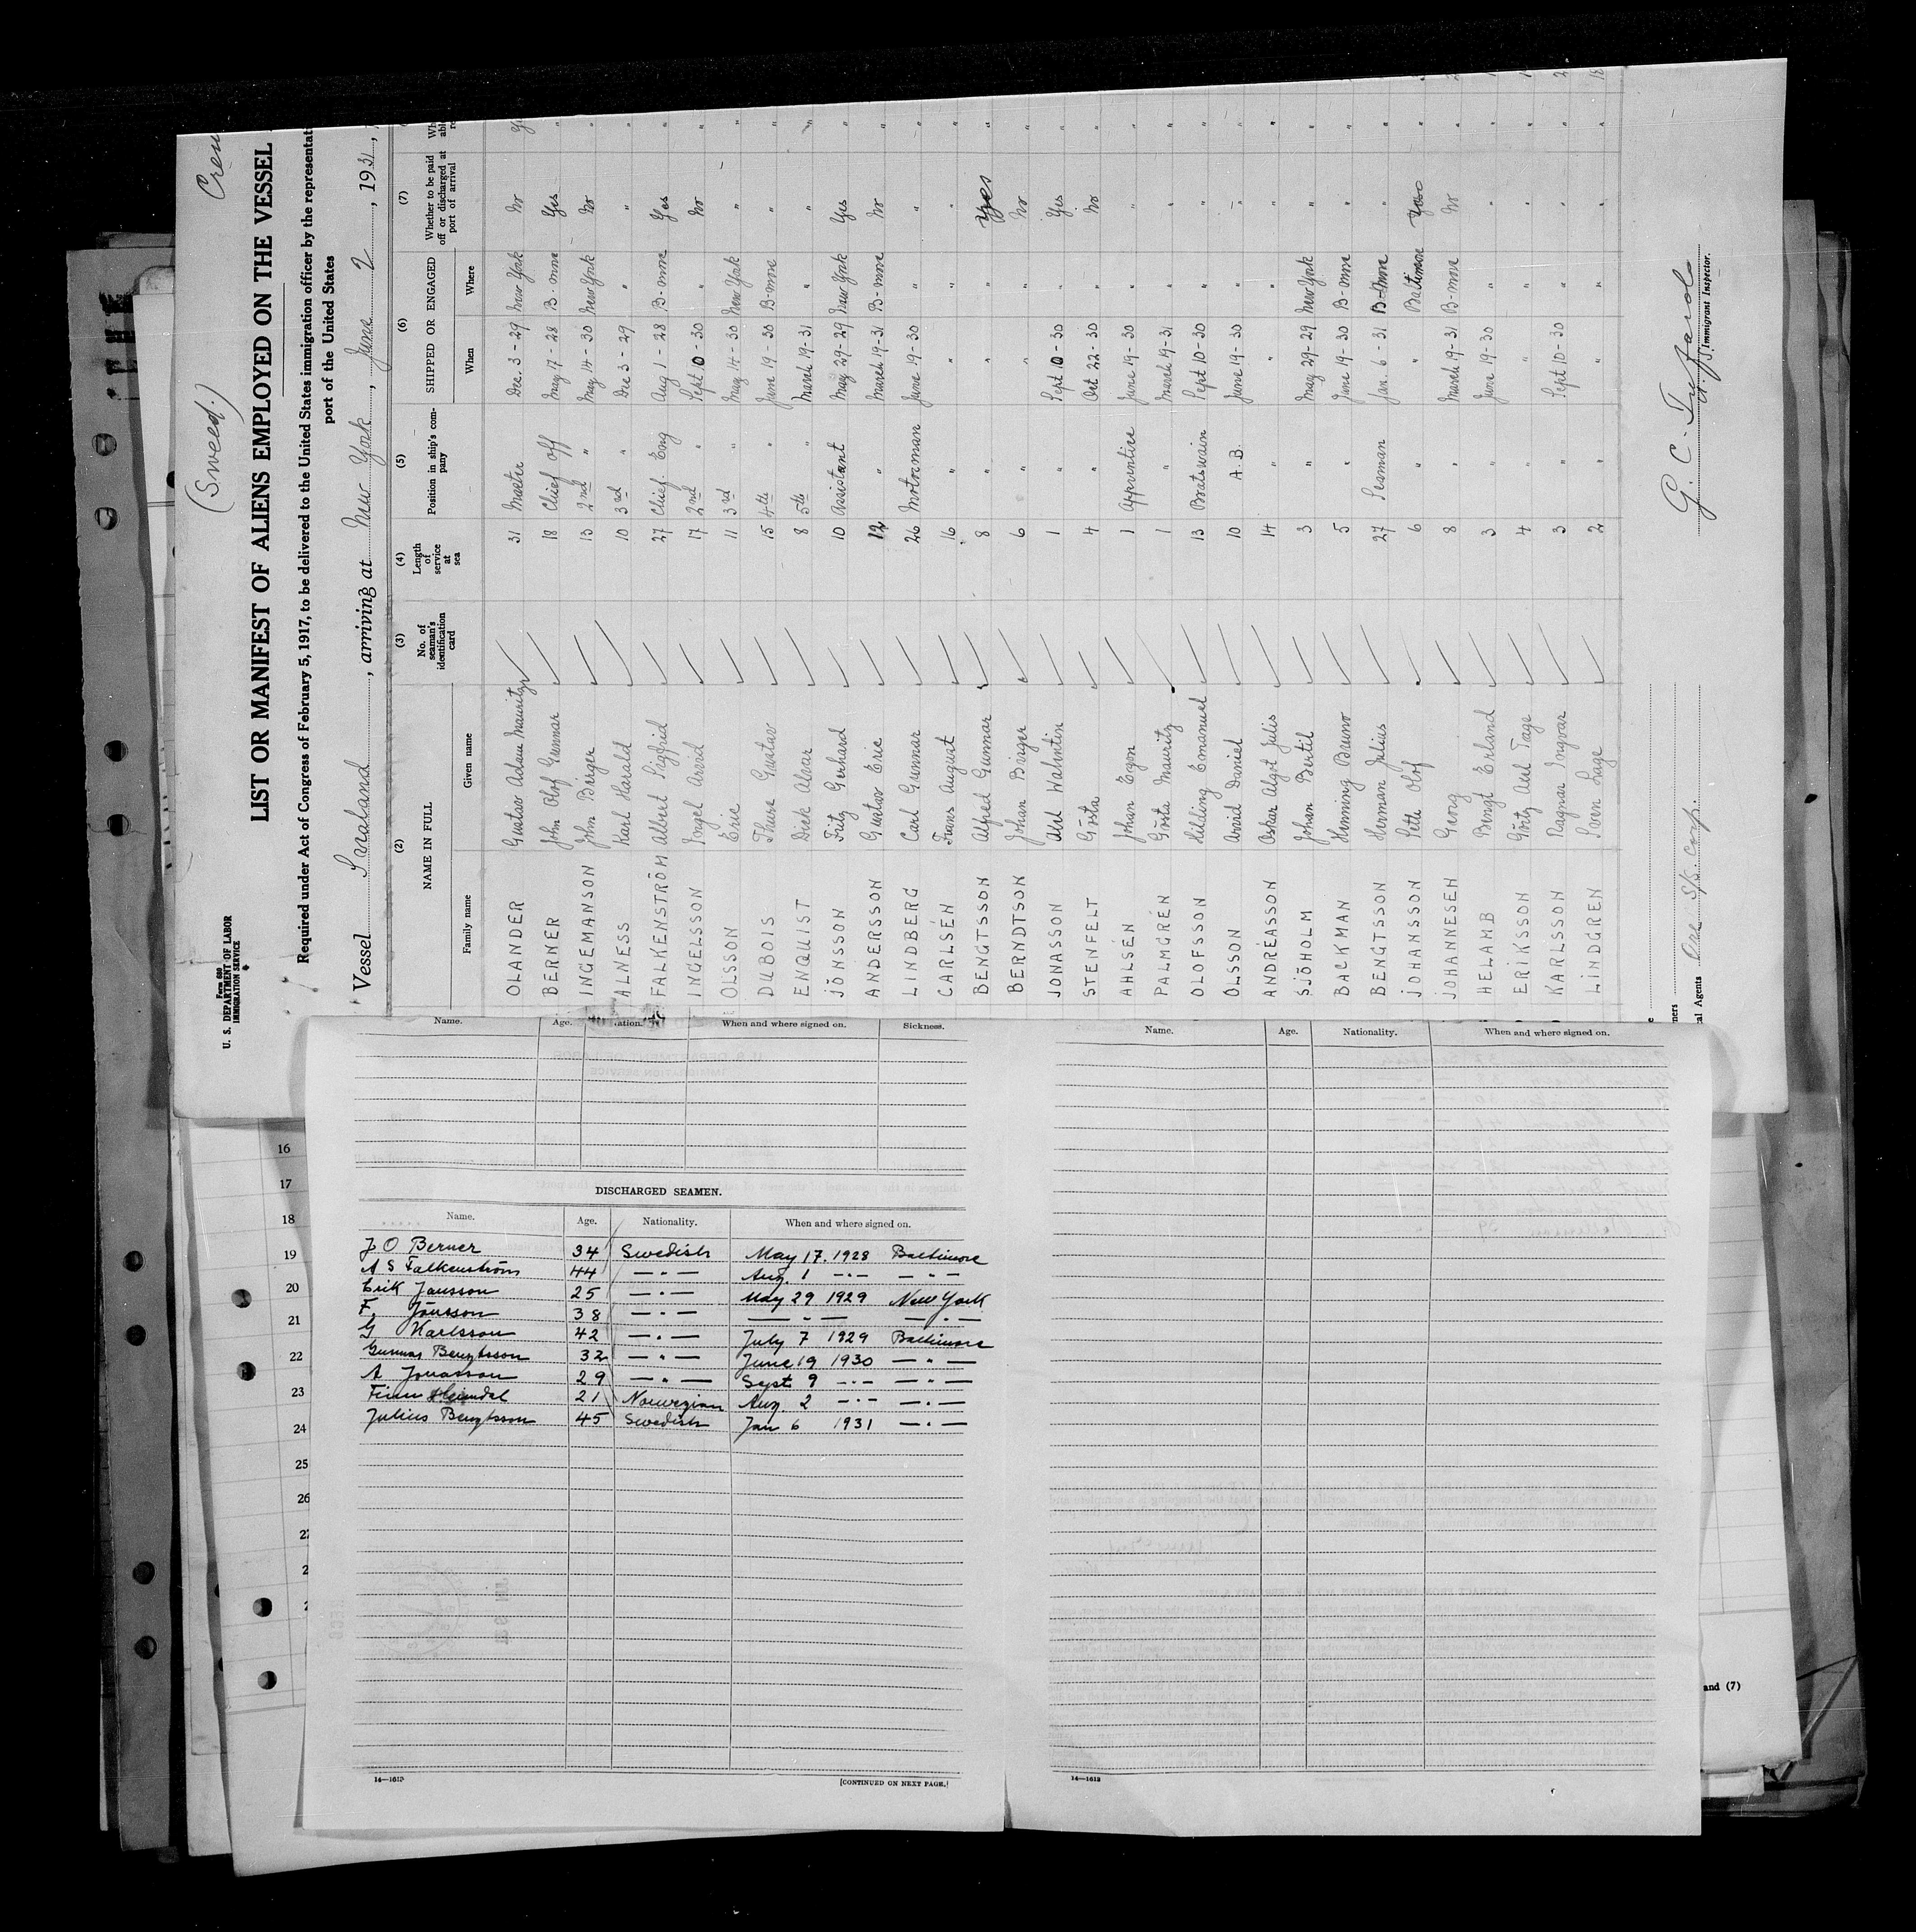 (Sweed.) Crew
Form 680
U. S. DEPARTMENT OF LABOR
IMMIGRATION SERVICE
LIST OR MANIFEST OF ALIENS EMPLOYED ON THE VESSEL
Required under Act of Congress of February 5, 1917, to be delivered to the United States immigration officer by the representat
port of the United States
Vessel Svealand, arriving at New York, June 2, 1931,
(2) (3) (4) (5) (6) (7)
NAME IN FULL No. of seaman's identification card Length of service at sea Position in ship's company SHIPPED OR ENGAGED Whether to be paid off or discharged at port of arrival
Family name Given name When Where
OLANDER Gustav Adam Mauritz 31 Master Dec. 3 - 29 New York No
BERNER John Olof Gunnar 18 Chief Off May 17 - 28 B-more Yes
INGEMANSON John Birger 13 2nd " May 14 - 30 New York No
ALNESS Karl Harald 10 3rd " Dec 3 - 29 " "
FALKENSTRÖM Albert Sigfrid 27 Chief Eng Aug 1 - 28 B-more Yes
INGELSSON Ingel Arvid 17 2nd " Sept 10 - 30 " No
OLSSON Eric 11 3rd " May 14 - 30 New York "
DUBOIS Thure Gustav 15 4th " June 19 - 30 B-more "
ENQUIST Dick Alvar 8 5th " March 19 - 31 " "
JÖNSSON Fritz Gerhard 10 Assistant May 29 - 29 New York Yes
ANDERSSON Gustav Eric 12 " March 19 - 31 B-more No
LINDBERG Carl Gunnar 26 Motorman June 19 - 30 " "
CARLSÉN Frans August 16 " " " "
BENGTSSON Alfred Gunnar 8 " " " Yes
BERNDTSON Johan Birger 6 " " " No
JONASSON Axel Walentin 1 " Sept 10 - 30 " Yes
STENFELT Gösta 4 " Oct 22 - 30 " No
AHLSÉN Johan Egon 1 Apprentice June 19 - 30 " "
PALMGRÉN Gösta Mauritz 1 " March 19 - 31 " "
OLOFSSON Hilding Emanuel 13 Boatswain Sept 10 - 30 " "
OLSSON Arvid Daniel 10 A.B. June 19 - 30 " "
ANDRÉASSON Oskar Algot Julis 14 " " " "
SJÖHOLM Johan Bertil 3 " May 29 - 29 New York "
BACKMAN Henning Bruno 5 " June 19 - 30 B-more "
BENGTSSON Herman Julius 27 Seaman Jan. 6 - 31 B-more "
JOHANSSON Olof 6 " " Baltimore
JOHANNESEN Georg 8 " March 19 - 31 B-more No
HELAMB Bengt Erland 3 " June 19 - 30 " "
ERIKSSON Axel Tage 4 " " " "
KARLSSON Ragnar Ingvar 3 " Sept 10 - 30 " "
LINDGREN Sven Tage 2 " " " "
G. C.
U. S. Immigrant Inspector.
cal Agents Ore S/S. Corp.
Name. Age. ation. When and where signed on. Sickness.
DISCHARGED SEAMEN.
Name. Age. Nationality. When and where signed on.
J O Berner 34 Swedish May 17. 1928 Baltimore
A S Falkenström 44 — " — Aug. 1 — " — — " —
Erik Jansson 25 — " — May 29 1929 New York
F. Jönsson 38 — " — — " —
G Karlsson 42 — " — July 7 1929 Baltimore
Gunnar Bengtsson 32 — " — June 19 1930 — " —
A Jonasson 29 — " — Sept 9 — " — — " —
Finn 21 Norwegian Aug. 2 — " — — " —
Julius Bengtsson 45 Swedish Jan 6 1931 — " —
14—1613 [CONTINUED ON NEXT PAGE.]
Name. Age. Nationality. When and where signed on.
14—1613
16
17
18
19
20
21
22
23
24
25
26
and (7)